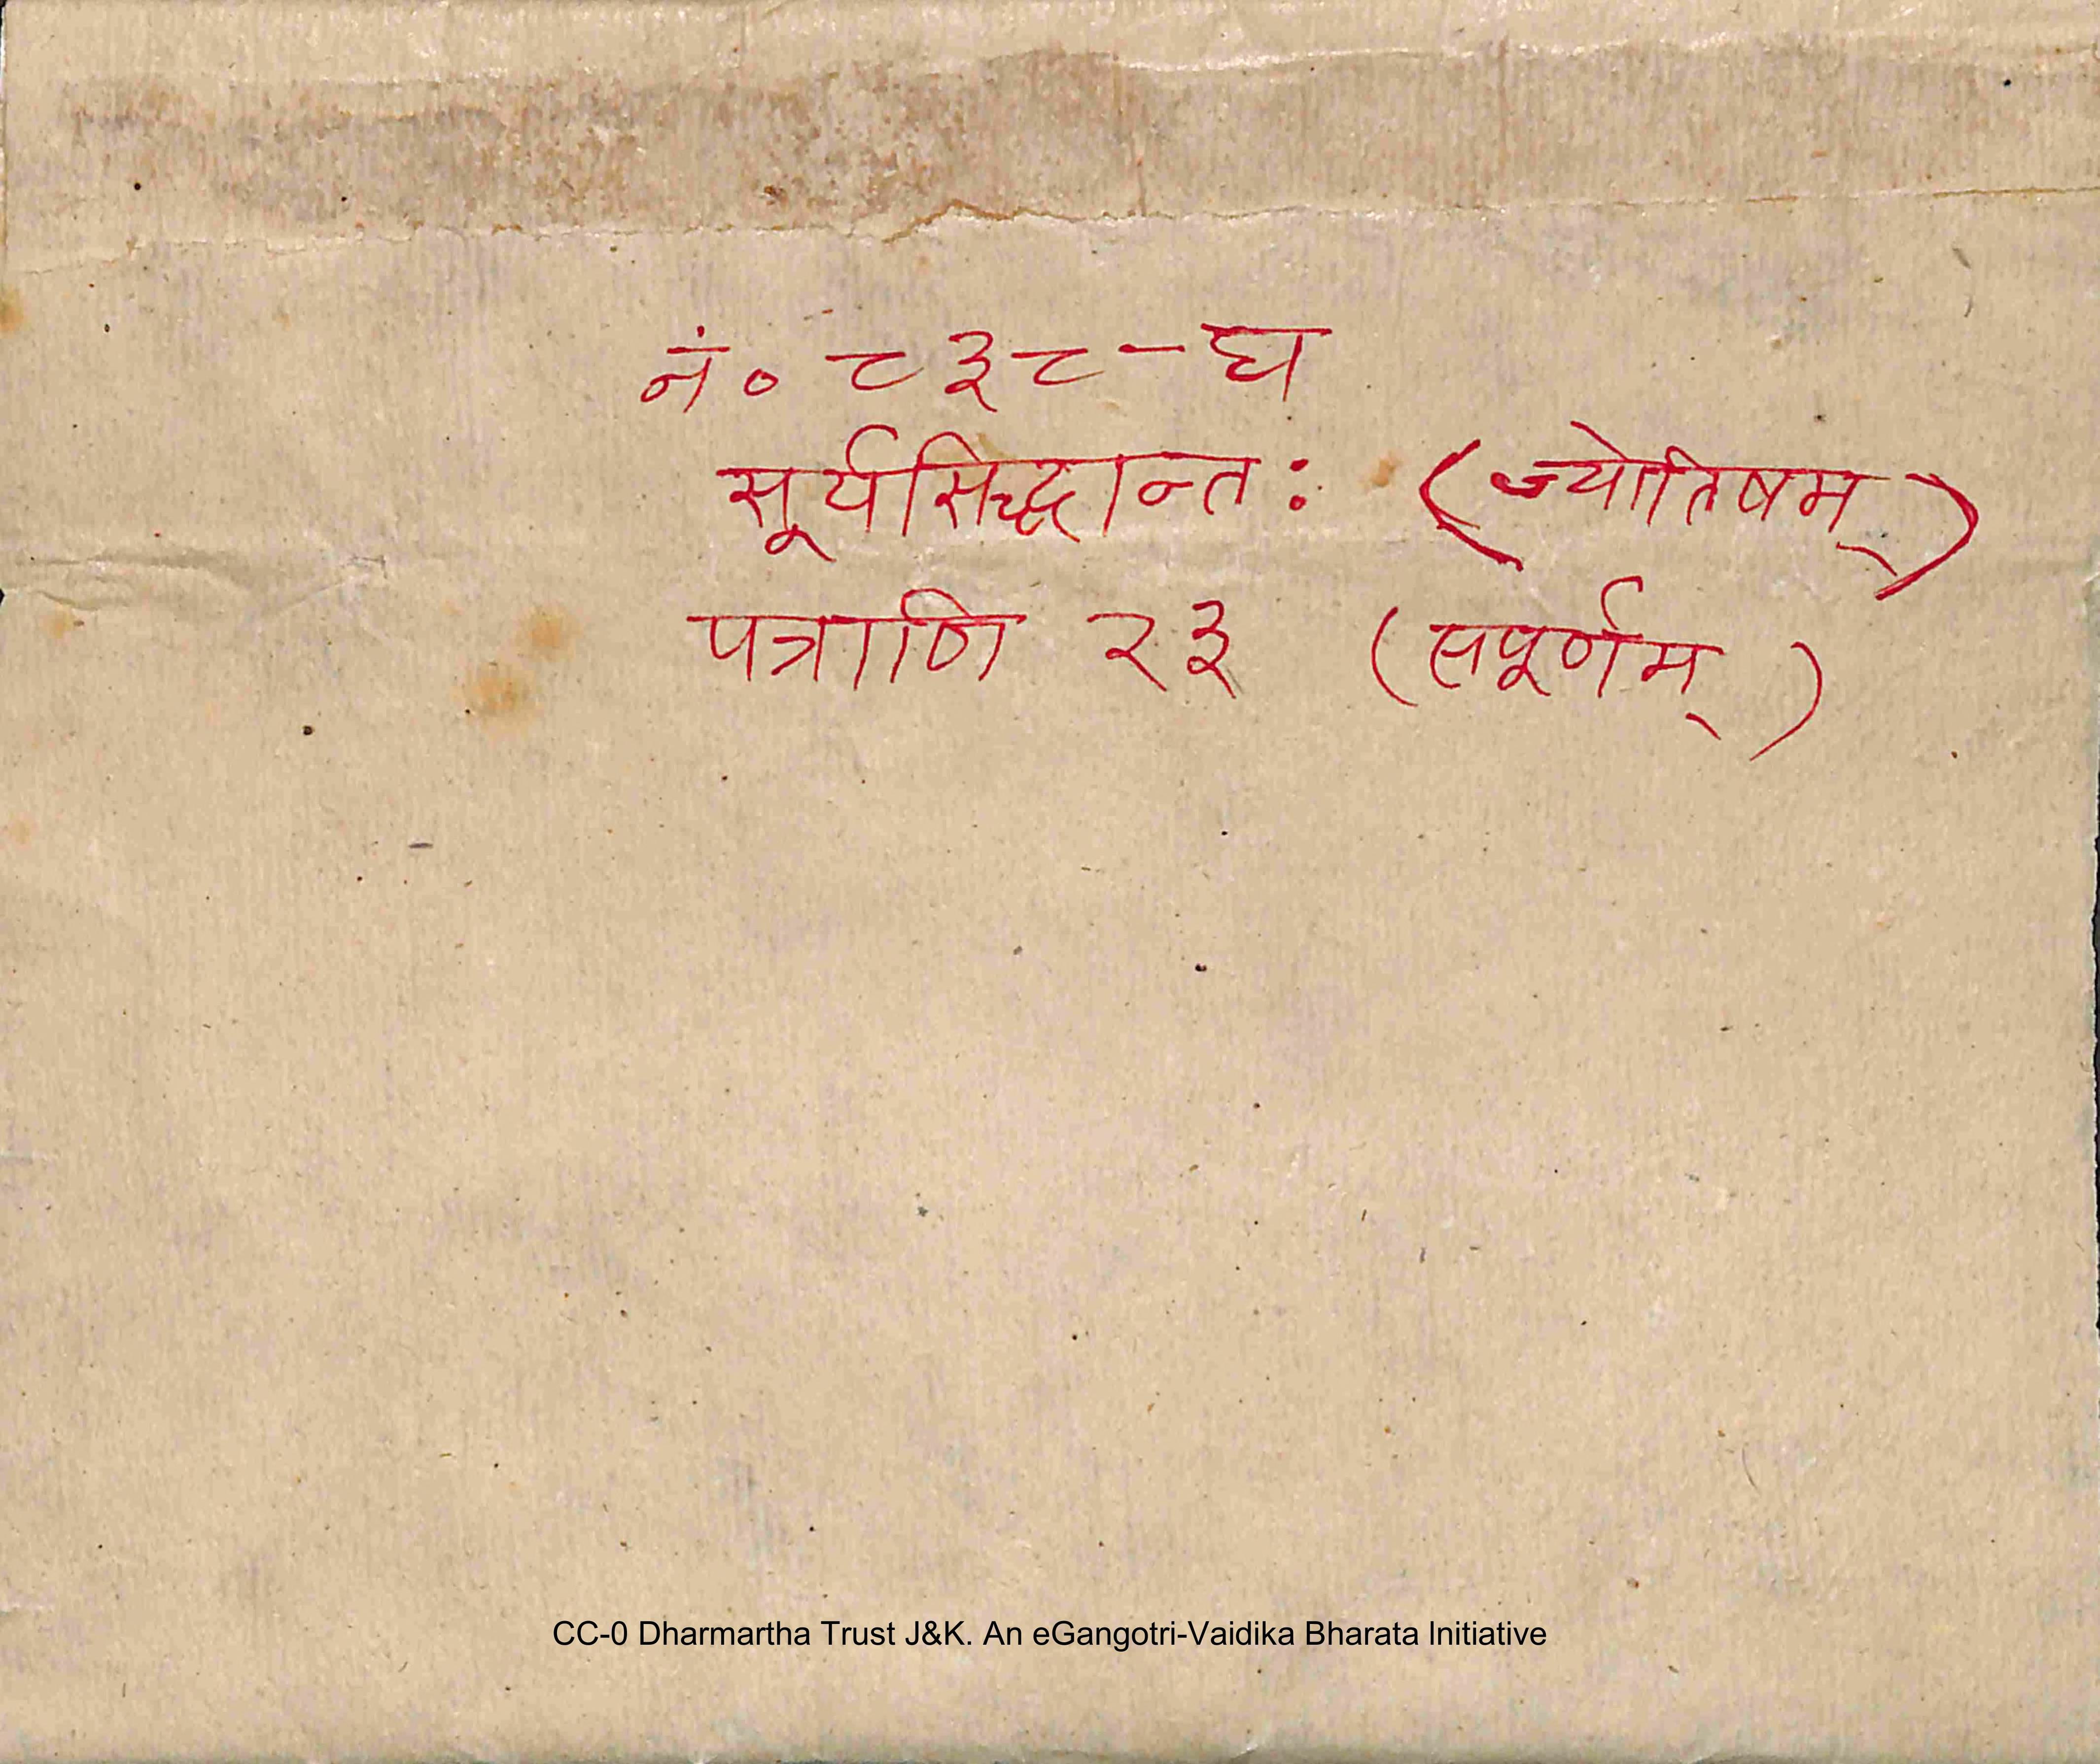 नं० ८३८-घ
सूर्यसिद्धान्तः (ज्योतिषम्)
पत्राणि २३ (सपूर्णम्)
CC-0 Dharmartha Trust J&K. An eGangotri-Vaidika Bharata Initiative